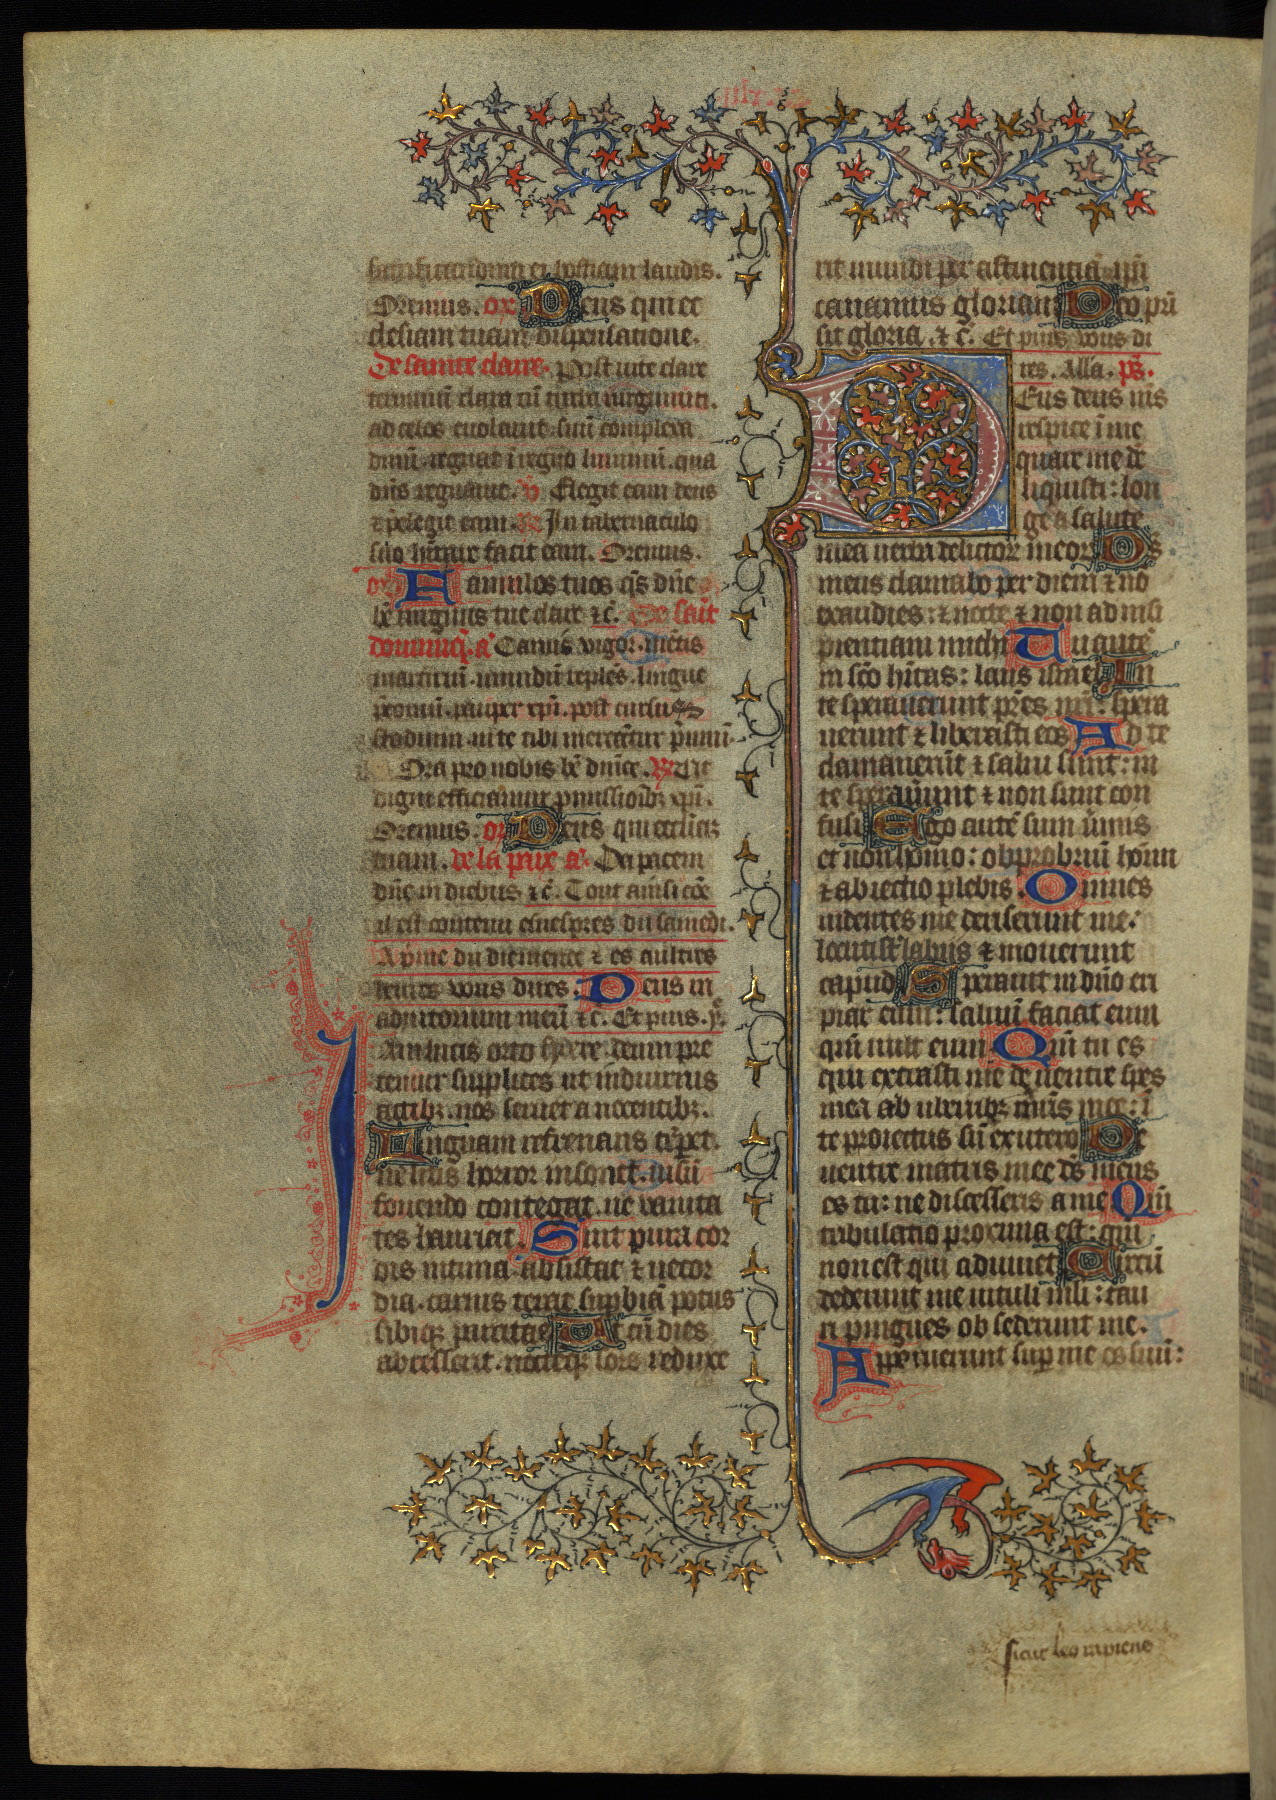 sacrificandum ei hostiam laudis.
Oremus. or Deus qui ec
clesiam tuam dispensatione.
De sainte clare. Post vite clare
terminū clara cū turba virginum.
ad celos euolauit suū complexa
dūm regnat ī regno luminū. qua
dn̄s regnante. v̄ Elegit eam deus
⁊ p̄elegit eam. R In tabernaculo
suo h̄itare facit eam. Oremus.
or Famulos tuos q̄s dn̄e
bē virginis tue clare ⁊ c̄. De saīt
dominiq̄. a Carnis vigor
martirum
pauper xp̄i. post cursus
stadium. ut te tibi
Ora pro nobis bē dn̄ice. R Ut
digni efficiamur ꝓmissioībꝫ xp̄i.
Oremus. or Deus qui eccliaꝫ
tuam. de la paix a. Da pacem
dn̄e in diebus ⁊ c̄. Tout ainsi cōe
il est contenu es vespres du samedi.
A p̄me du diemenche ⁊ es aultres
heures vous dires. Deus in
adiutorium meū ⁊ c̄. Et puis. y.
Iam lucis orto sydere. deum pre
cemur supplices ut in diurnus
actibꝫ. nos seruet a nocentibꝫ.
Linguam refrenans tēpet.
ne litis horror insonet. uisū
fouendo contegat. ne vanita
tes hauriat. Sint pura cor
dis intima. absistat ⁊ uecor
dia. carnis terat suꝑbiā potus
cibiqꝫ parcitas Ut cū dies
abcesserit. noctēqꝫ sors reduxe
rit mundi per astinentiā. ip̄i
canamus gloriam Deo pr̄i
sit gloria. ⁊ c̄. Et puis vous di
res. Alla. ps̄.
Eus deus m̄s
respice ī me
quare me de
liquisti: lon
ge a salute
mea uerba delictoꝝ meoꝝ Ds̄
meus clamabo per diem ⁊ nō
exaudies: ⁊ nocte ⁊ non ad insi
pientiam michi Tu autē
in sc̄o h̄itas: laus isrl̄ In
te sperauerunt pr̄es nr̄i: spera
uerunt ⁊ liberasti eos Ad te
clamauerūt ⁊ salui sunt: in
te sperauūnt ⁊ non sunt con
fusi Ego autē sum ūmis
et non homo: obprobriū homī
⁊ abiectio plebis. Omnes
uidentes me deriserunt me:
locuti sūt labiis ⁊ mouerunt
capud Sperauit in dn̄o eri
piat eum: saluū faciat eum
qm̄ uult eum Qm̄ tu es
qui extrasti me de uentre spes
mea ab uberibꝫ mīs mee: ī
te proiectus sū ex utero De
uentre matris mee ds̄ meus
es tu: ne discesseris a me Qm̄
tribulatio proxima est: qm̄
non est qui adiuuet Circū
dederunt me uituli mlī: tau
ri pingues obsederunt me.
Apperuerunt suꝑ me os suū:
sicut leo rapiens